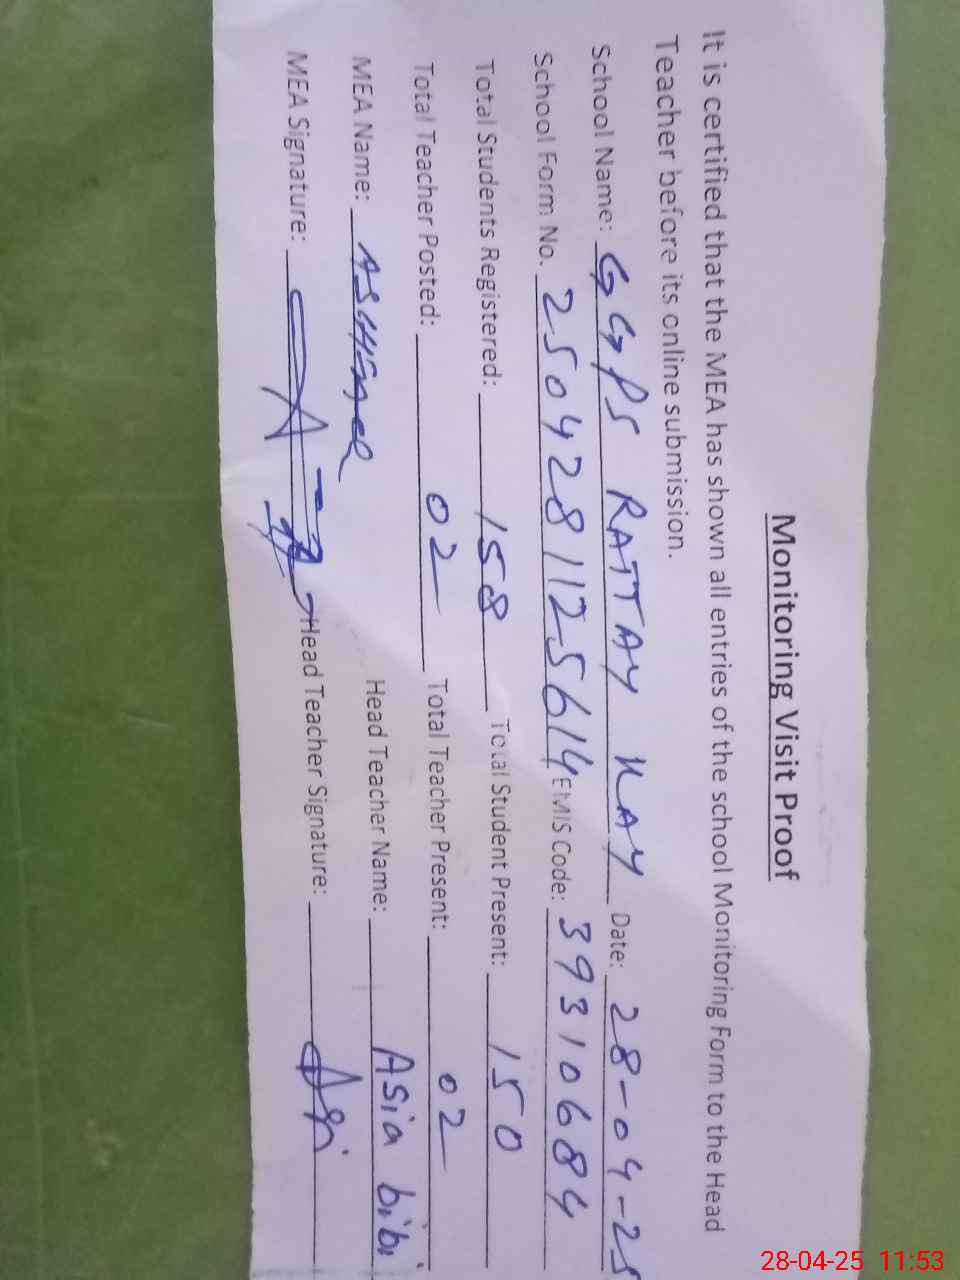 Monitoring Visit Proof
It is certified that the MEA has shown all entries of the school Monitoring Form to the Head
Teacher before its online submission.
School Name: GGPS RATTAY KAY Date: 28-04-25
School Form No. 2504281125614 EMIS Code: 39310684
Total Students Registered: 158 Total Student Present: 150
Total Teacher Posted: 02 Total Teacher Present: 02
MEA Name: Head Teacher Name: Asia bibi
MEA Signature: Head Teacher Signature:
28-04-25 11:53